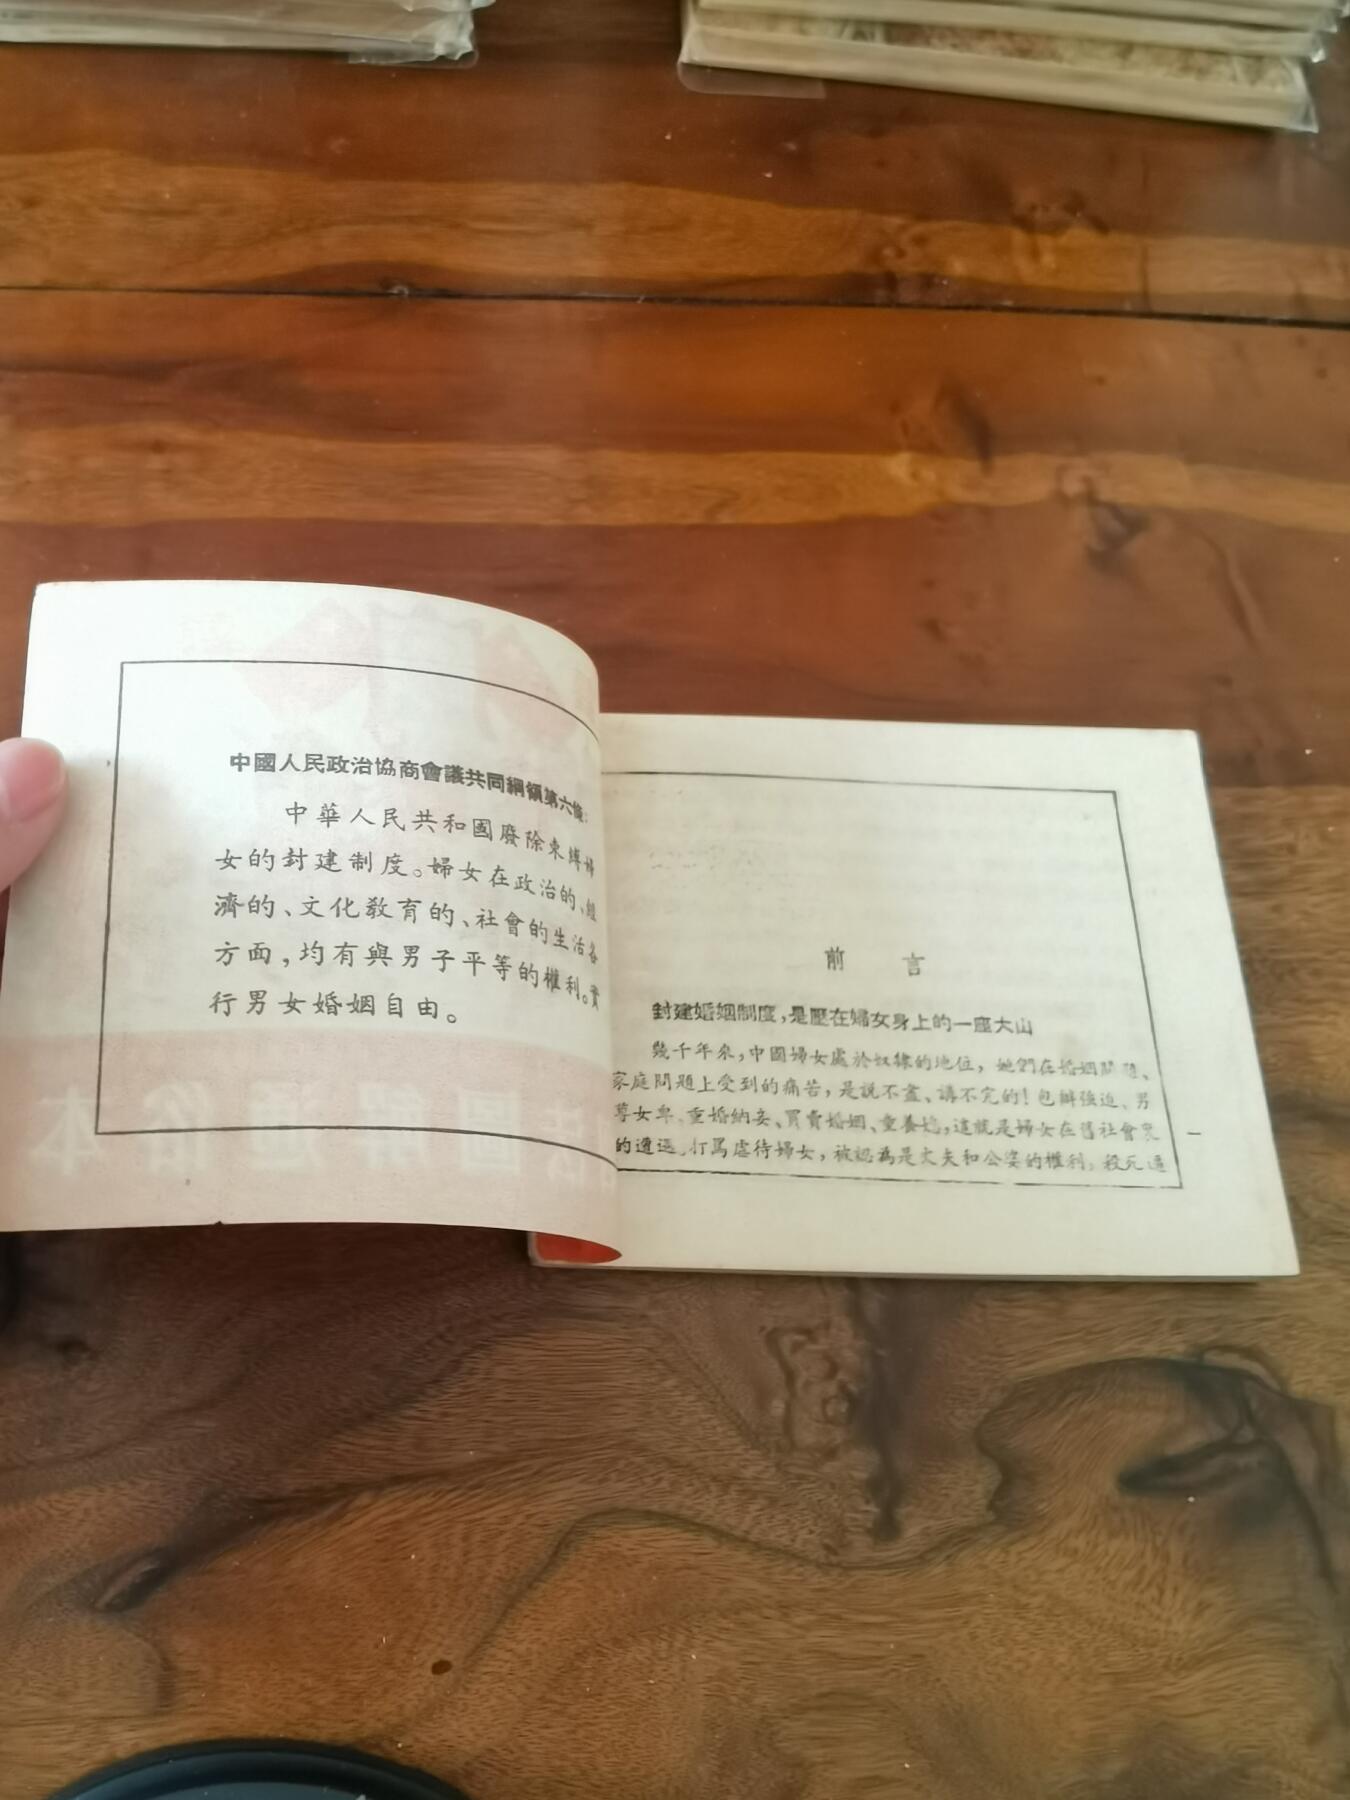 中國人民政治協商會議共同綱領第六條：
中華人民共和國廢除束縛婦
女的封建制度。婦女在政治的、經
濟的、文化教育的、社會的生活各
方面，均有與男子平等的權利。實
行男女婚姻自由。
前言
封建婚姻制度，是壓在婦女身上的一座大山
幾千年來，中國婦女處於奴隸的地位，她們在婚姻問題、
家庭問題上受到的痛苦，是說不盡、講不完的！包辦強迫、男
尊女卑、重婚納妾、買賣婚姻、童養媳，這就是婦女在舊社會裏
的遭遇。打罵虐待婦女，被認為是丈夫和公婆的權利，殺死逼
一